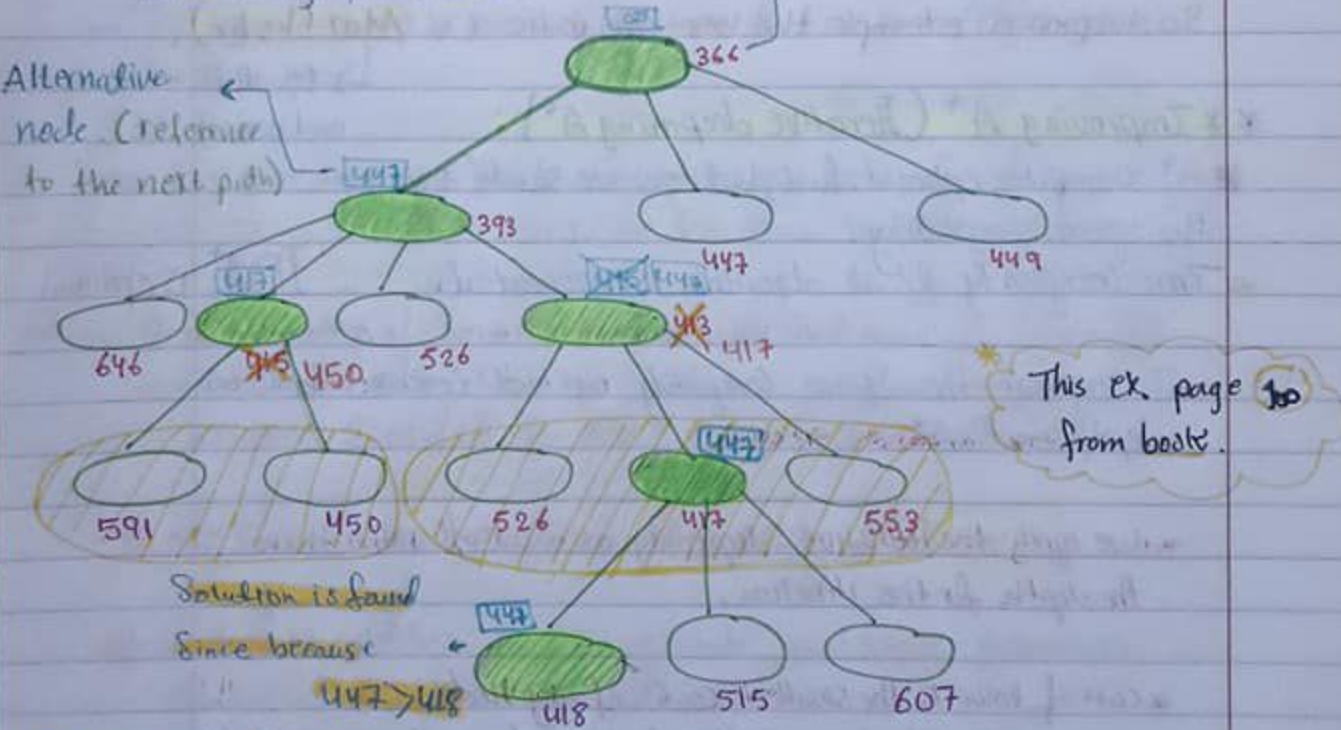 ∞
366
Alternative
node (reference
to the next path)
447
393
447
449
417
415 447
646
415 450
526
413 417
This ex page 100
from book.
447
591
450
526
417
553
Solution is found
Since because
447 > 418
447
418
515
607